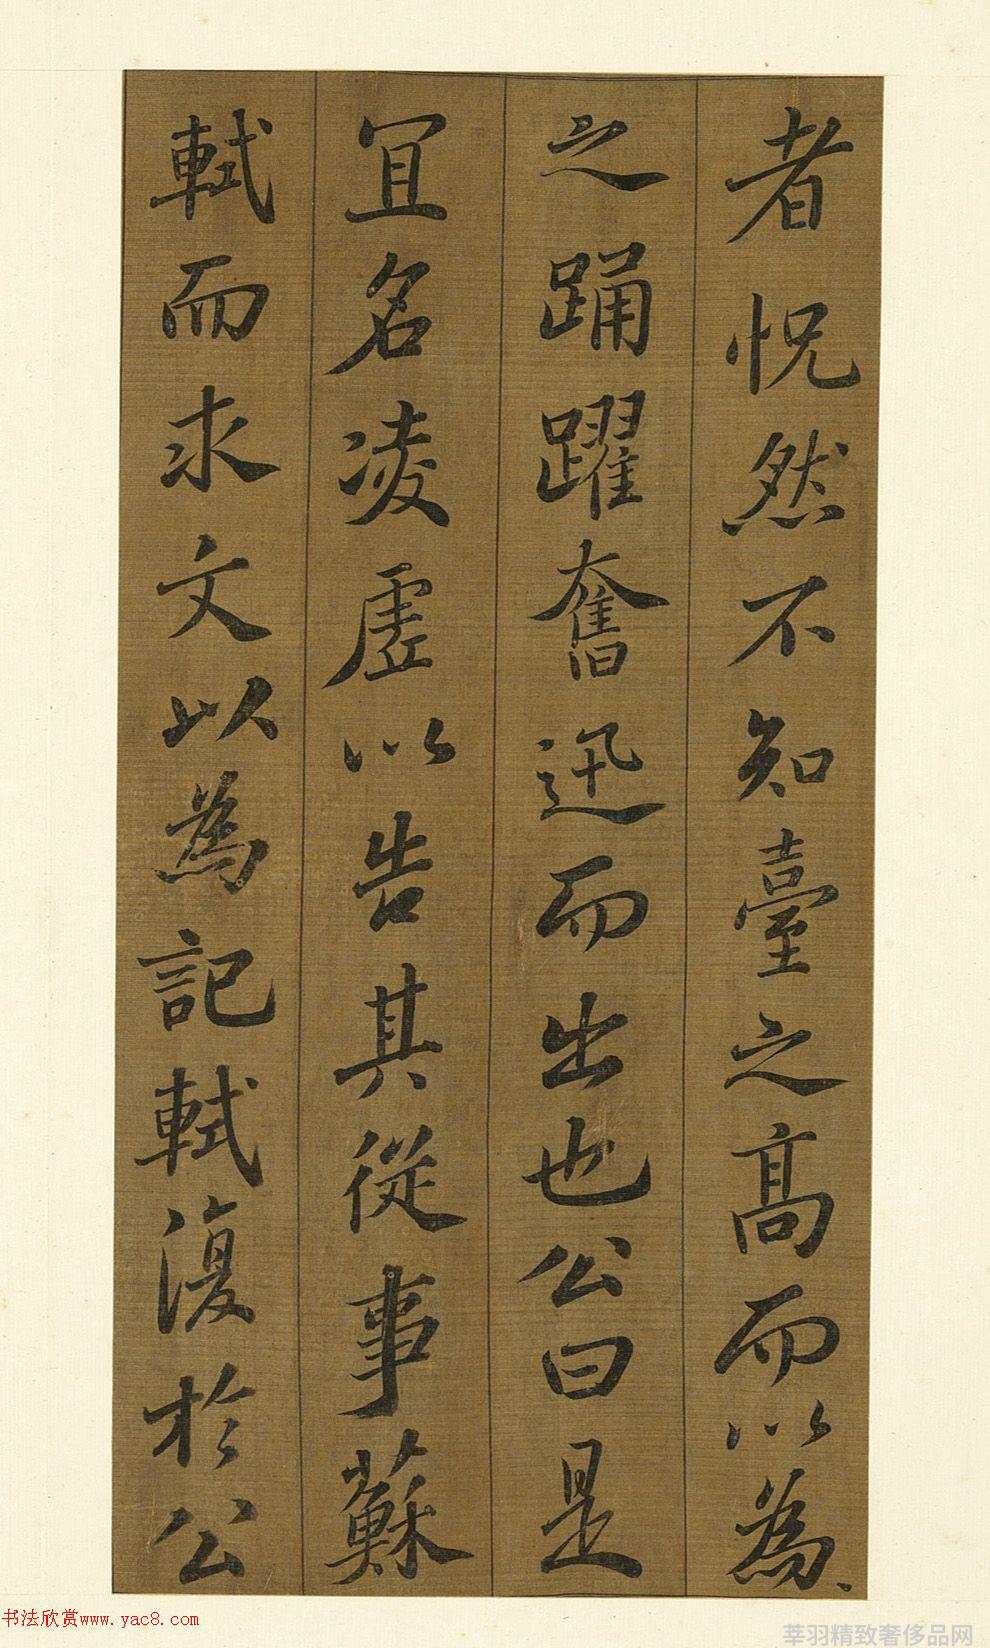 者怳然不知臺之高而以為
之踊躍奮迅而出也公曰是
宜名凌虛以告其從事蘇
軾而求文以為記軾復於公
书法欣赏www.yac8.com
莘羽精致奢侈品网